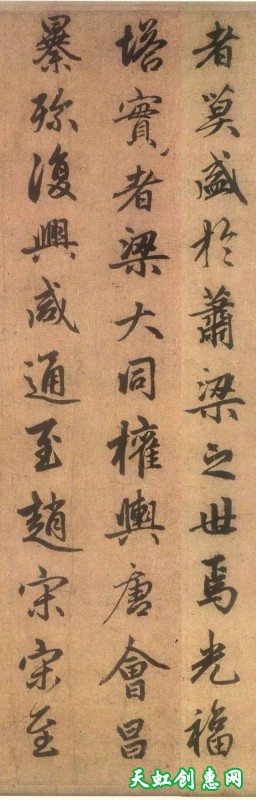 者莫盛於蕭梁之世焉光福
塔實者梁大同權輿唐會昌
暴殄復興咸通至趙宋宋至
天虹创惠网